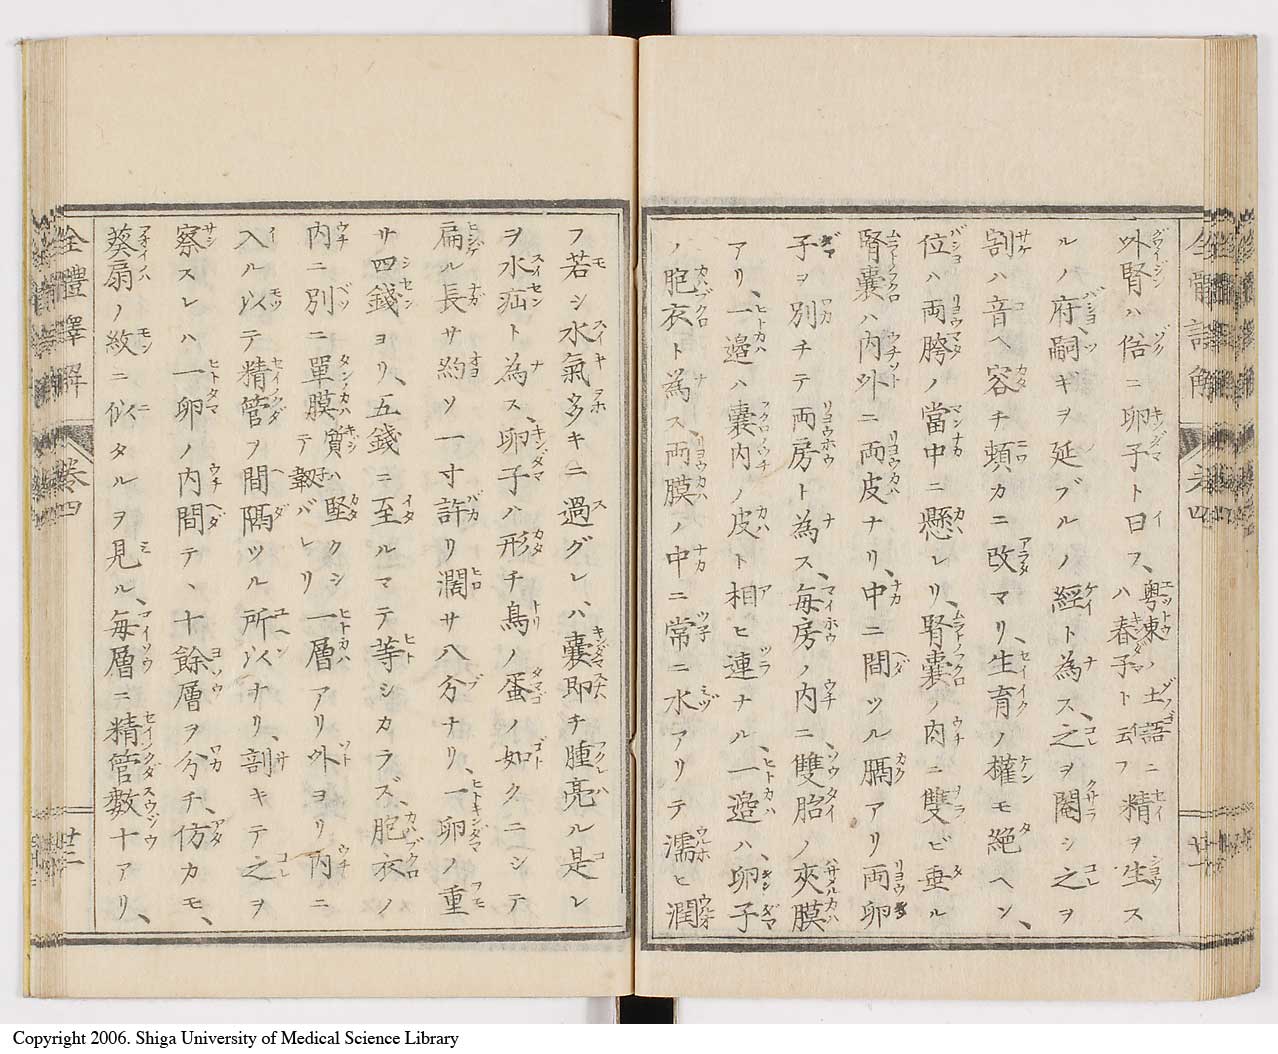 外腎ハ俗ニ卵子ト曰ス、粤東ノ土語ニハ春子ト云フ精ヲ生ス
ルノ府嗣ギヲ延ブルノ經ト為ス、之ヲ閹シ之ヲ
割ハ音ヘ容チ頓カニ改マリ、生育ノ權モ絶ヘン、
位ハ両胯ノ當中ニ懸レリ、腎囊ノ内ニ雙ビ垂ル
腎囊ハ内外ニ両皮ナリ、中ニ間ツル膈アリ両卵
子ヲ別チテ両房ト為ス、毎房ノ内ニ雙胎ノ夾膜
アリ、一邉ハ囊内ノ皮ト相ヒ連ナル、一邉ハ卵子
ノ胞衣ト為ス、両膜ノ中ニ常ニ水アリテ濡ヒ潤
フ若シ水氣多キニ過グレハ囊即チ腫亮ル是レ
ヲ水疝ト為ス、卵子ハ形チ鳥ノ蛋ノ如クニシテ
扁ル長サ約ソ一寸許リ濶サ八分ナリ、一卵ノ重
サ四錢ヨリ、五錢ニ至ルマテ等シカラズ、胞衣ノ
内ニ別ニ單膜質ハ堅クシテ韌バレリ一層アリ外ヨリ内ニ
入ル以テ精管ヲ間隔ツル所以ナリ、剖キテ之ヲ
察スレハ一卵ノ内間テ、十餘層ヲ分チ、仿カモ、
葵扇ノ紋ニ似タルヲ見ル、毎層ニ精管數十アリ、
全體譯解
卷四
廿二
Copyright 2006. Shiga University of Medical Science Library